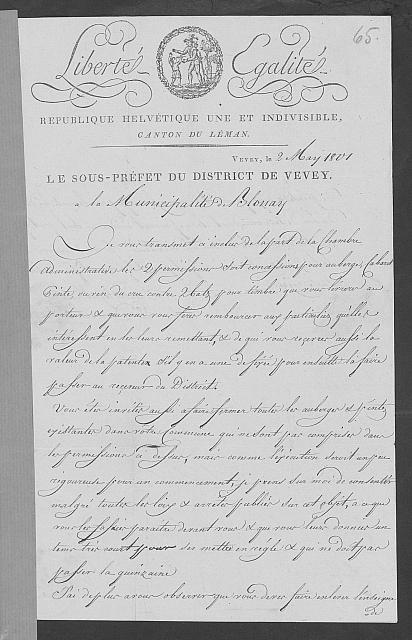 65.
Liberté Egalité
REPUBLIQUE HELVÉTIQUE UNE ET INDIVISIBLE,
CANTON DU LÉMAN.
VEVEY, le 2 May 1801
LE SOUS-PRÉFET DU DISTRICT DE VEVEY.
a la Municipalité de Blonay
Je vous transmet ci inclus de la part de la Chambre
Administrative les 2 permissions soit concessions pour auberge, Cabaret
Pinte, ou vin du cru contre 2 batz pour timbre que vous livrerez au
porteur & que vous vous ferez rembourcer aux particuliers qu'elles
intéressent en les leurs remettant, & de qui vous recevrez aussi la
valeur de la patente s'il y en a une de fixée pour ensuitte la faire
passer au receveur du District.
Vous êtes invités aussi a faire fermer toutes les auberges et pintes
existantes dans votre Commune qui ne sont pas comprises dans
les permissions ci dessus, mais comme l'exécution seroit un peu
rigoureuse pour un commencement, je prens sur moi de consentir
malgré toutes les loix & arretés publiés sur cet objet, a ce que
vous les fassiez paraitre devant vous & que vous leurs donniez un
tems très court pour se mettre en règle & qui ne doit pas
passer la quinzaine
J'ai de plus a vous observer que vous devez faire enlever l'enseigne
de